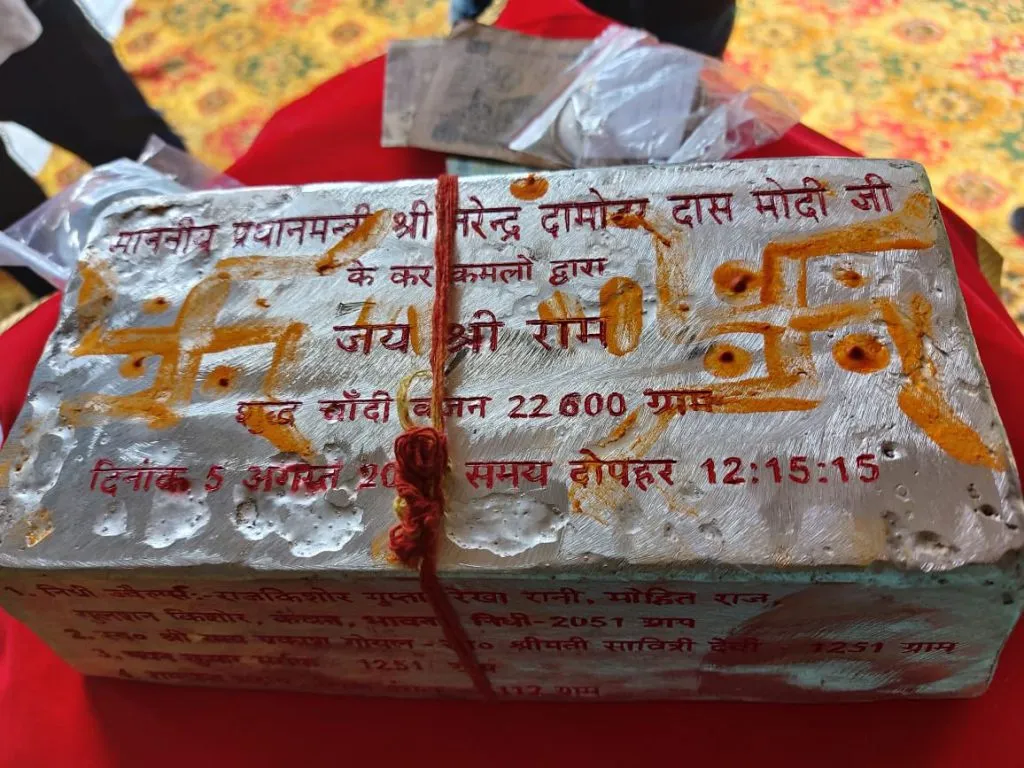 माननीय प्रधानमन्त्री श्री नरेन्द्र दामोदर दास मोदी जी
के कर कमलो द्वारा
जय श्री राम
शुद्ध चाँदी वजन 22600 ग्राम
दिनांक 5 अगस्त 20 समय दोपहर 12:15:15
1. निधी ज्वैलर्स:-राजकिशोर गुप्ता रेखा रानी, मोहित राज,
गुलशन किशोर, कंचन, भावना निधी-2051 ग्राम
2. स्व० श्री प्रकाश गोयल श्रीमती सावित्री देवी - 1251 ग्राम
3. कुमार 1251
4. ग्राम